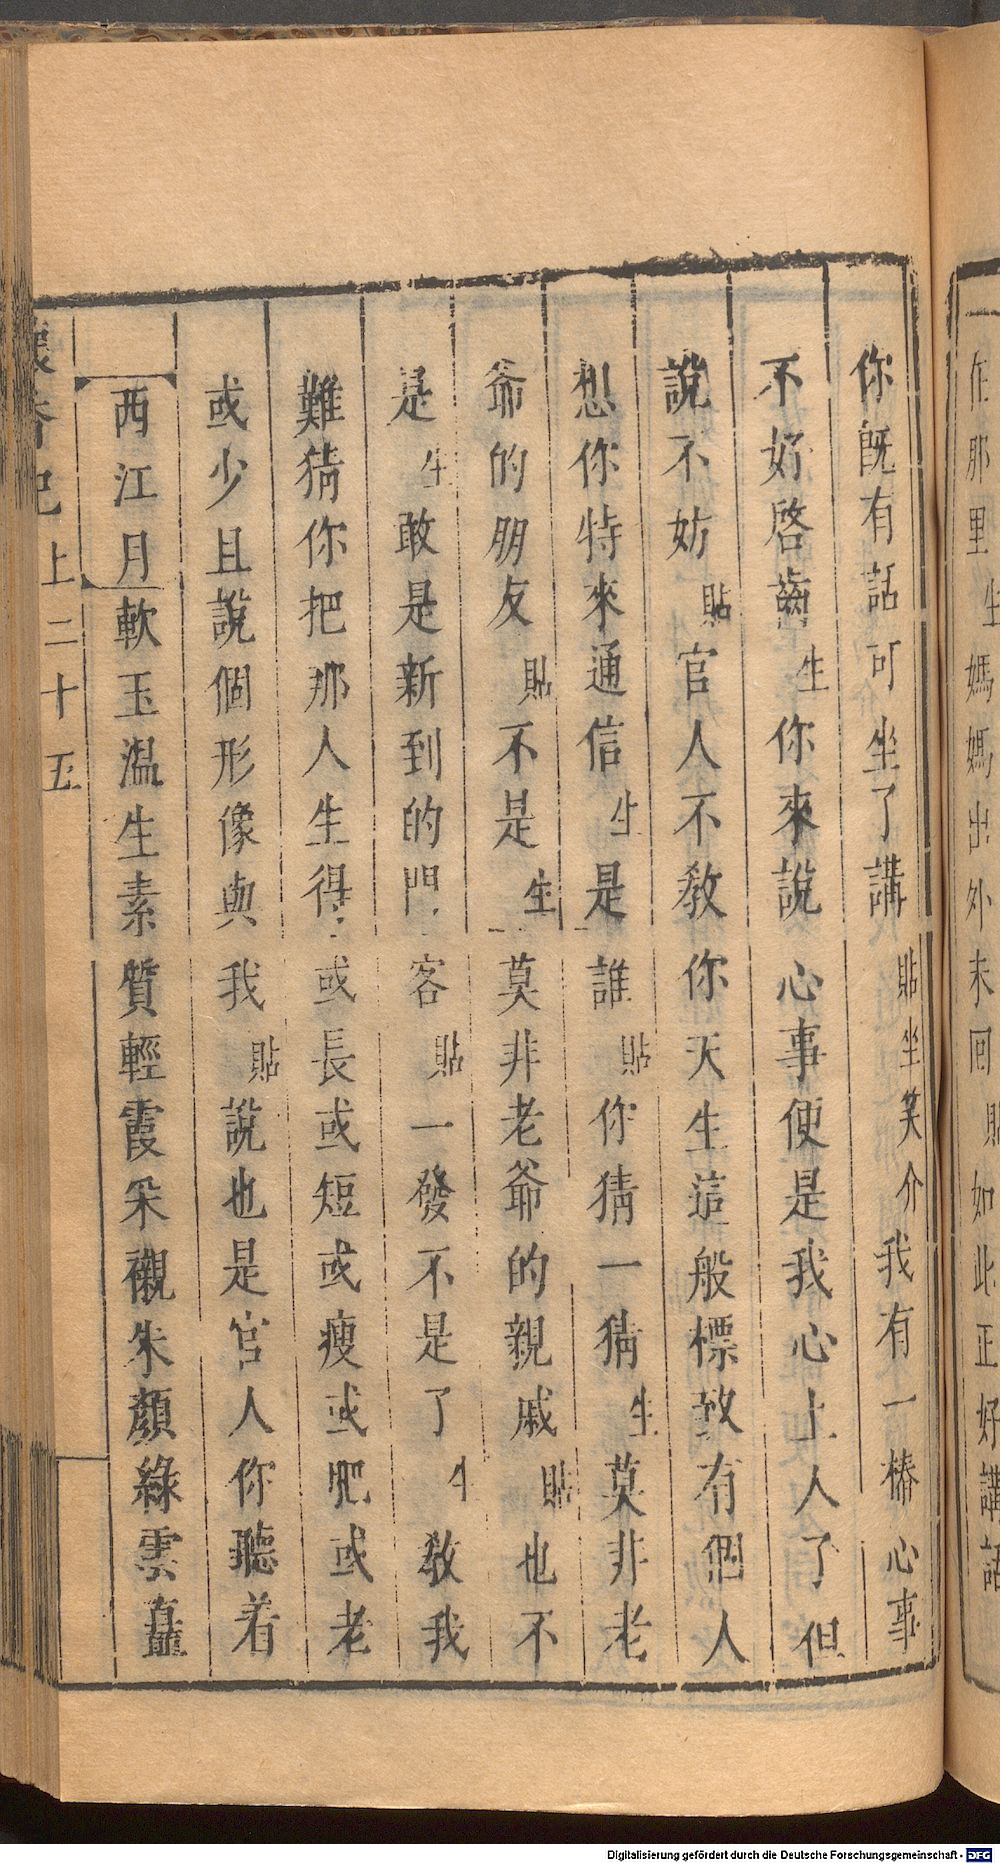 在那里生媽媽出外未回貼如此正好講話
你旣有話可坐了講貼坐笑介我有一樁心事
不好啓齒生你來說心事便是我心上人了但
說不妨貼官人不敎你天生這般標致有個人
想你特來通信生是誰貼你猜一猜生莫非老
爺的朋友貼不是生莫非老爺的親戚貼也不
是生敢是新到的門客貼一發不是了生敎我
難猜你把那人生得或長或短或瘦或肥或老
或少且說個形像與我貼說也是官人你聽着
西江月軟玉溫生素質輕霞朵襯朱顏綠雲矗
懷香記上二十五
Digitalisierung gefördert durch die Deutsche Forschungsgemeinschaft - DFG